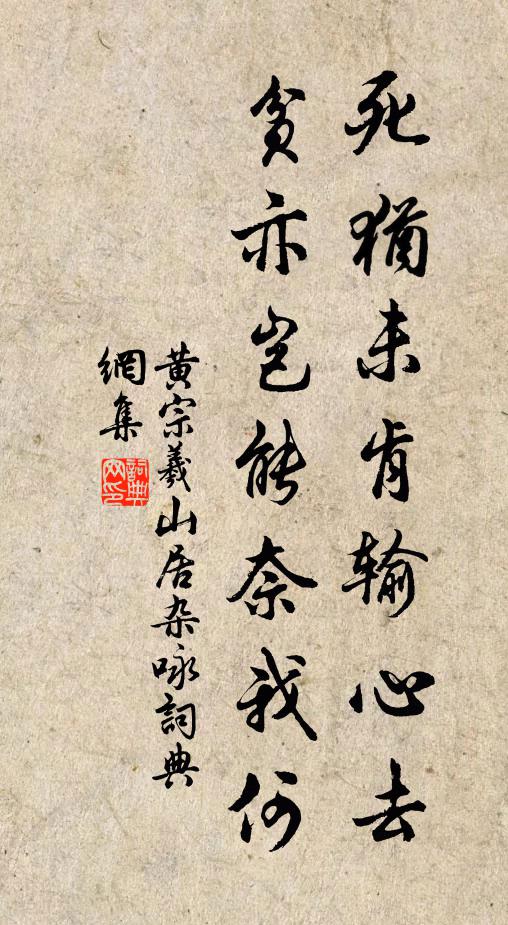 死猶未肯输心去
貧亦岂能奈我何
黄宗羲山居杂咏詞典
網集
詞典
网印